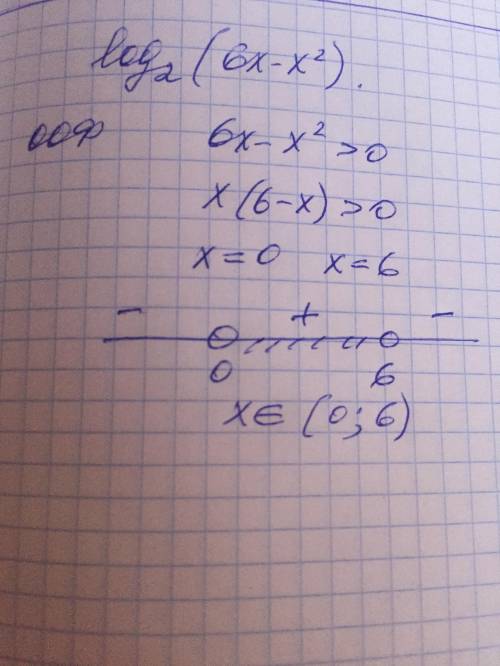 log₂(6x-x²).
ООФ 6x-x²>0
x(6-x)>0
x=0 x=6
- + -
0 6
x∈(0;6)